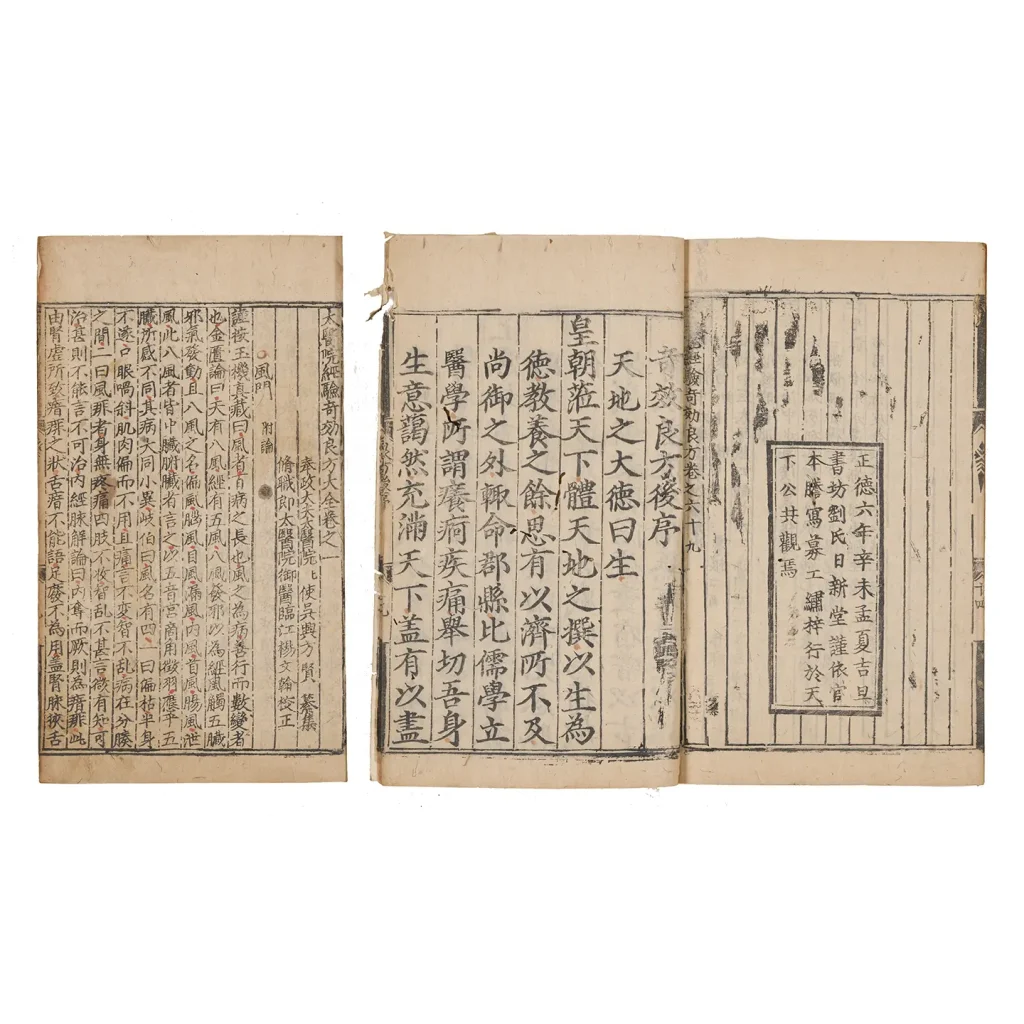 太醫院經驗奇効良方大全卷之一
奉政大夫太醫院〻使吳興方 賢 纂集
脩職郎太醫院御醫臨江楊文翰校正
○風門 附論
謹按玉機真藏曰風者百病之長也風之為病善行而數變者
也金匱論曰天有八風經有五風八風發邪以為經風觸五臟
邪氣發動且八風之名偏風腦風目風漏風內風首風腸風泄
風此八風者皆中臟腑臟者言之以五音宮商角徵羽應乎五
臟所感不同其病大同小異岐伯曰風名有四一曰偏枯半身
不遂口眼喎斜肌肉偏而不用且痛言不變智不乱病在分腠
之間二曰風痱者身無疼痛四肢不收智乱不甚言微有知可
治甚則不能言不可治內經脉解論曰內奪而厥則為瘖痱此
由腎虛所致瘖痱之狀舌瘖不能語足癈不為用盖腎脉挾舌
正德六年辛未孟夏吉旦
書坊劉氏日新堂謹依官
本謄寫募工繡梓行於天
下公共觀焉
經驗奇効良方卷之六十九
奇效良方後序
天地之大德曰生
皇朝蒞天下體天地之撰以生為
德教養之餘思有以濟所不及
尚御之外輒命郡縣比儒學立
醫學所謂癢痾疾痛舉切吾身
生意藹然充滿天下蓋有以盡